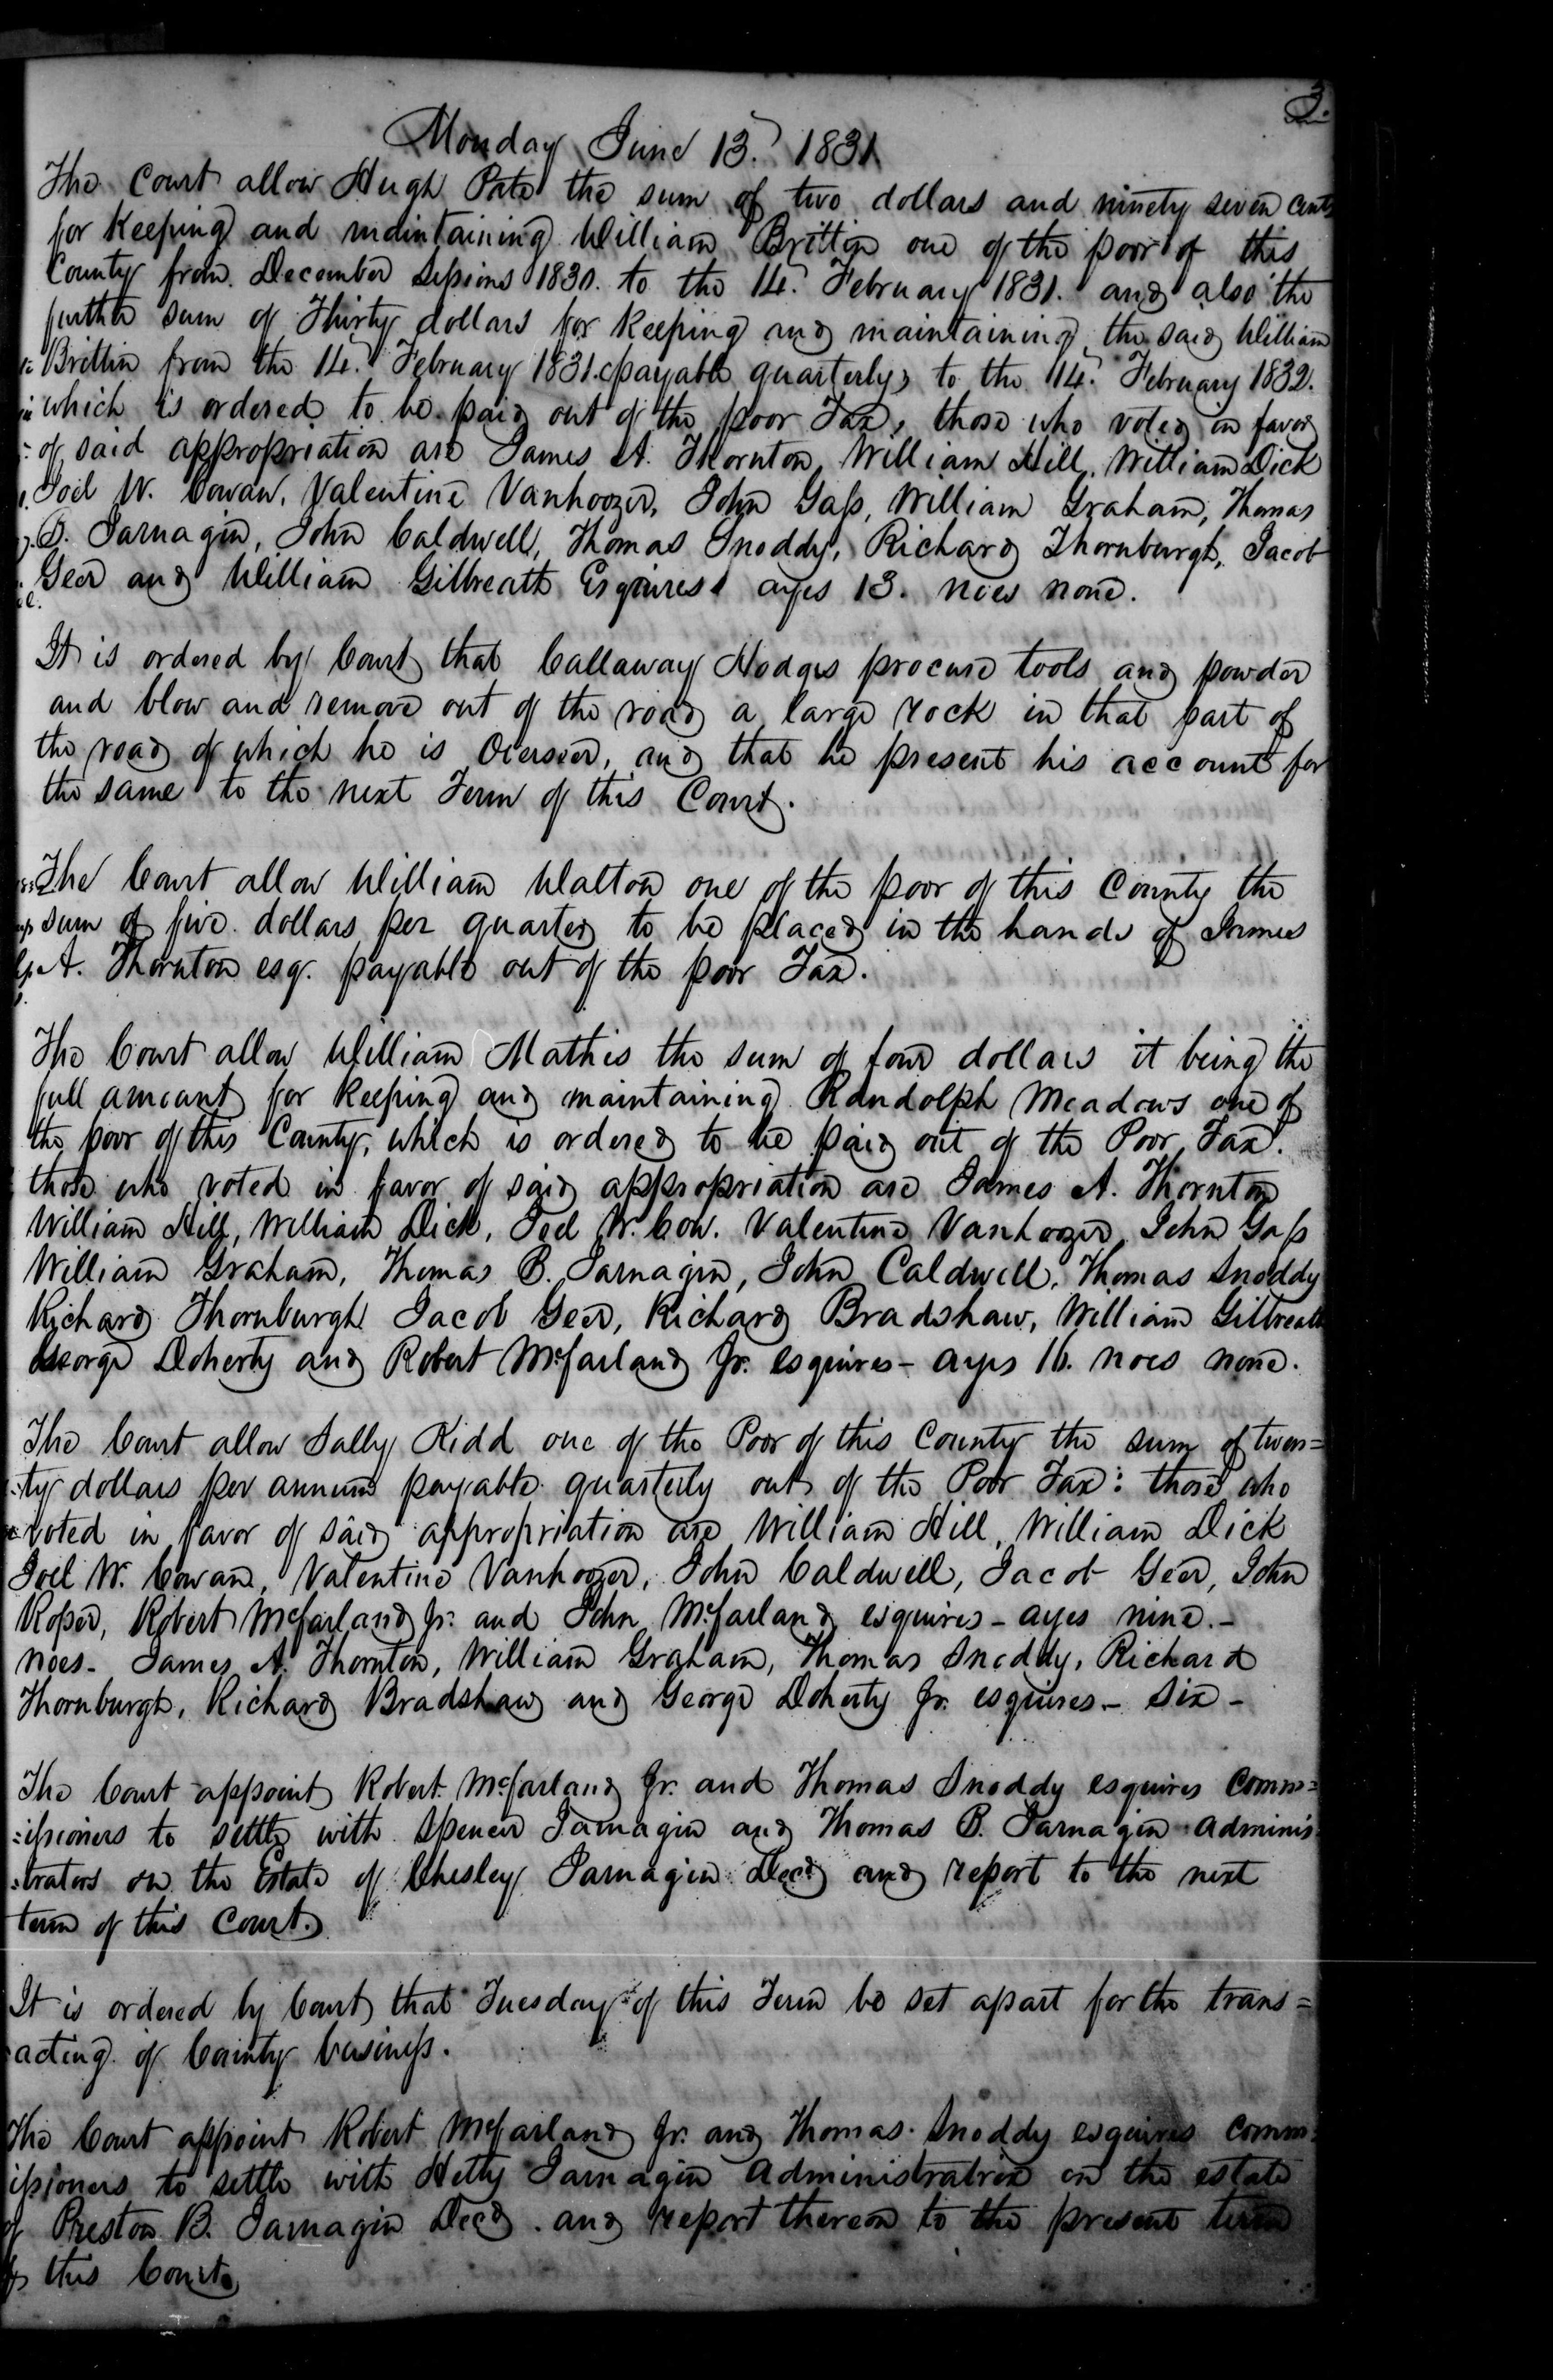 3.
Monday June 13. 1831
The Court allow Hugh Pate the sum of two dollars and ninety seven cents
for Keeping and maintaining William Brittin one of the poor of this
County from December Sessions 1830. to the 14. February 1831. and also the
further sum of Thirty dollars for Keeping and maintaining the said William
Brittin from the 14. February 1831 (payable quarterly) to the 14. February 1832.
which is ordered to be paid out of the poor Tax, those who voted in favor
of said appropriation are James A. Thornton, William Hill, William Dick
Joel W. Cowan, Valentine Vanhoozer, John Gass, William Graham, Thomas
B. Jarnagin, John Caldwell, Thomas Snoddy, Richard Thornburgh, Jacob
Geer and William Gilbreath Esquires ayes 13. noes none.
It is ordered by Court that Callaway Hodges procure tools and powder
and blow and remove out of the road a large rock in that part of
the road of which he is Overseer, and that he present his account for
the same to the next Term of this Court.
The Court allow William Walton one of the poor of this County the
sum of five dollars per quarter to be placed in the hands of James
A. Thornton esqr. payable out of the poor Tax.
The Court allow William Mathis the sum of four dollars it being the
full amount for Keeping and maintaining Randolph Meadows one of
the poor of this County, which is ordered to be paid out of the Poor Tax.
those who voted in favor of said appropriation are James A. Thornton
William Hill, William Dick, Joel W. Cow. Valentine Vanhoozer, John Gass
William Graham, Thomas B. Jarnagin, John Caldwell, Thomas Snoddy
Richard Thornburgh Jacob Geer, Richard Bradshaw, William Gilbreath
George Doherty and Robert McFarland Jr. esquires - ayes 16. noes none.
The Court allow Sally Kidd one of the Poor of this County the sum of twen=
=ty dollars per annum payable quarterly out of the Poor Tax: those who
voted in favor of said appropriation are William Hill, William Dick
Joel W. Cowan, Valentine Vanhoozer, John Caldwell, Jacob Geer, John
Roper, Robert McFarland Jr. and John McFarland esquires - ayes nine. -
noes - James A. Thornton, William Graham, Thomas Snoddy, Richard
Thornburgh, Richard Bradshaw and George Doherty Jr. esquires - Six -
The Court appoint Robert McFarland Jr. and Thomas Snoddy esquires Comm=
=issioners to settle with Spencer Jarnagin and Thomas B. Jarnagin Adminis=
=trators on the Estate of Chesley Jarnagin Decd and report to the next
term of this Court.
It is ordered by Court that Tuesday of this Term be set apart for the trans=
acting of County business.
The Court appoint Robert McFarland Jr. and Thomas Snoddy esquires comm=
issioners to settle with Hetty Jarnagin Administratrix on the estate
of Preston B. Jarnagin Decd. and report thereon to the present term
of this Court